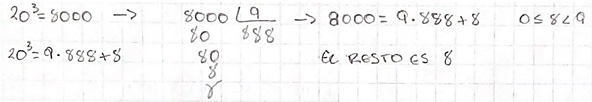 20³=8000 → 8000 | 9 → 8000 = 9.888+8 0≤8<9
80 888
20³=9.888+8 80 EL RESTO ES 8
8